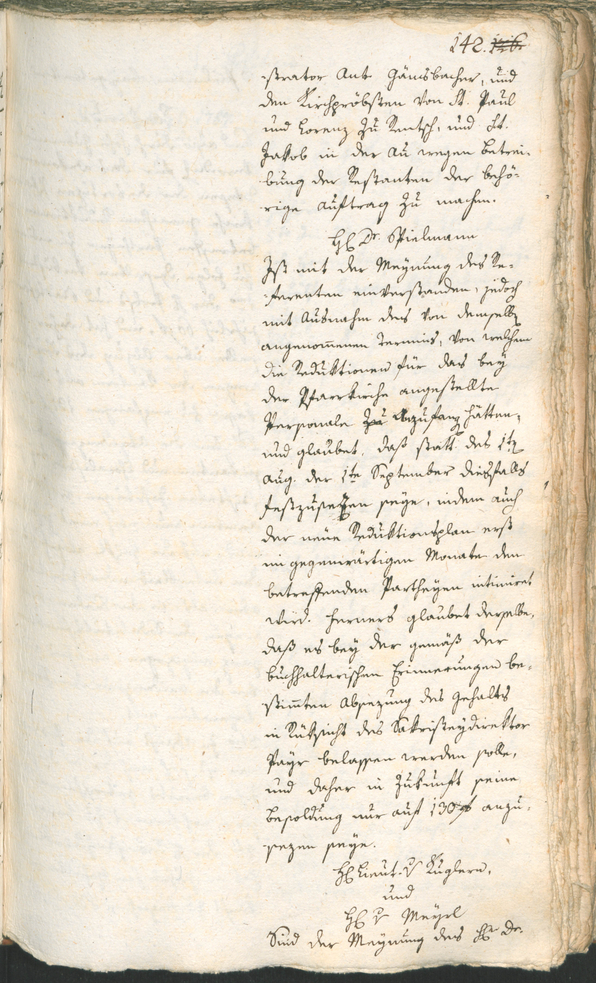 142.
strator Ant Gämsbacher, und
den Kirchpröbsten von St. Paul
und Lorenz zu Rentsch, und St.
Jakob in der Au wegen Betrei-
bung der Restanten der behö-
rige Auftrag zu machen.
H. Dr. Spielmann
Ist mit der Meynung des Re-
ferenten einverstanden, jedoch
mit Ausnahm des von demselb
angenommenen Termins, von welchem
die Reduktionen für das bey
der Pfarrkirche angestellte
Personale zu anzufang hätten,
und glaubet, daß statt des 1te
Aug. der 1te September diesfalls
festzusetzen seye, indem auch
der neue Reduktionsplan erst
im gegenwärtigen Monate den
betreffenden Partheyen intimiret
wird. Ferners glaubet derselbe,
daß es bey der gemäß der
buchhalterischen Erinnerungen be-
stimten Absezung des Gehalts
in Rüksicht des Sakristeydirektor
Payr belassen werden solle,
und daher in Zukunft seine
Besoldung nur auf 130 f anzu-
sezen seye.
H. Lieut. v Kuglern,
und
H. v Mayrl
Sind der Meynung des H. Dr.